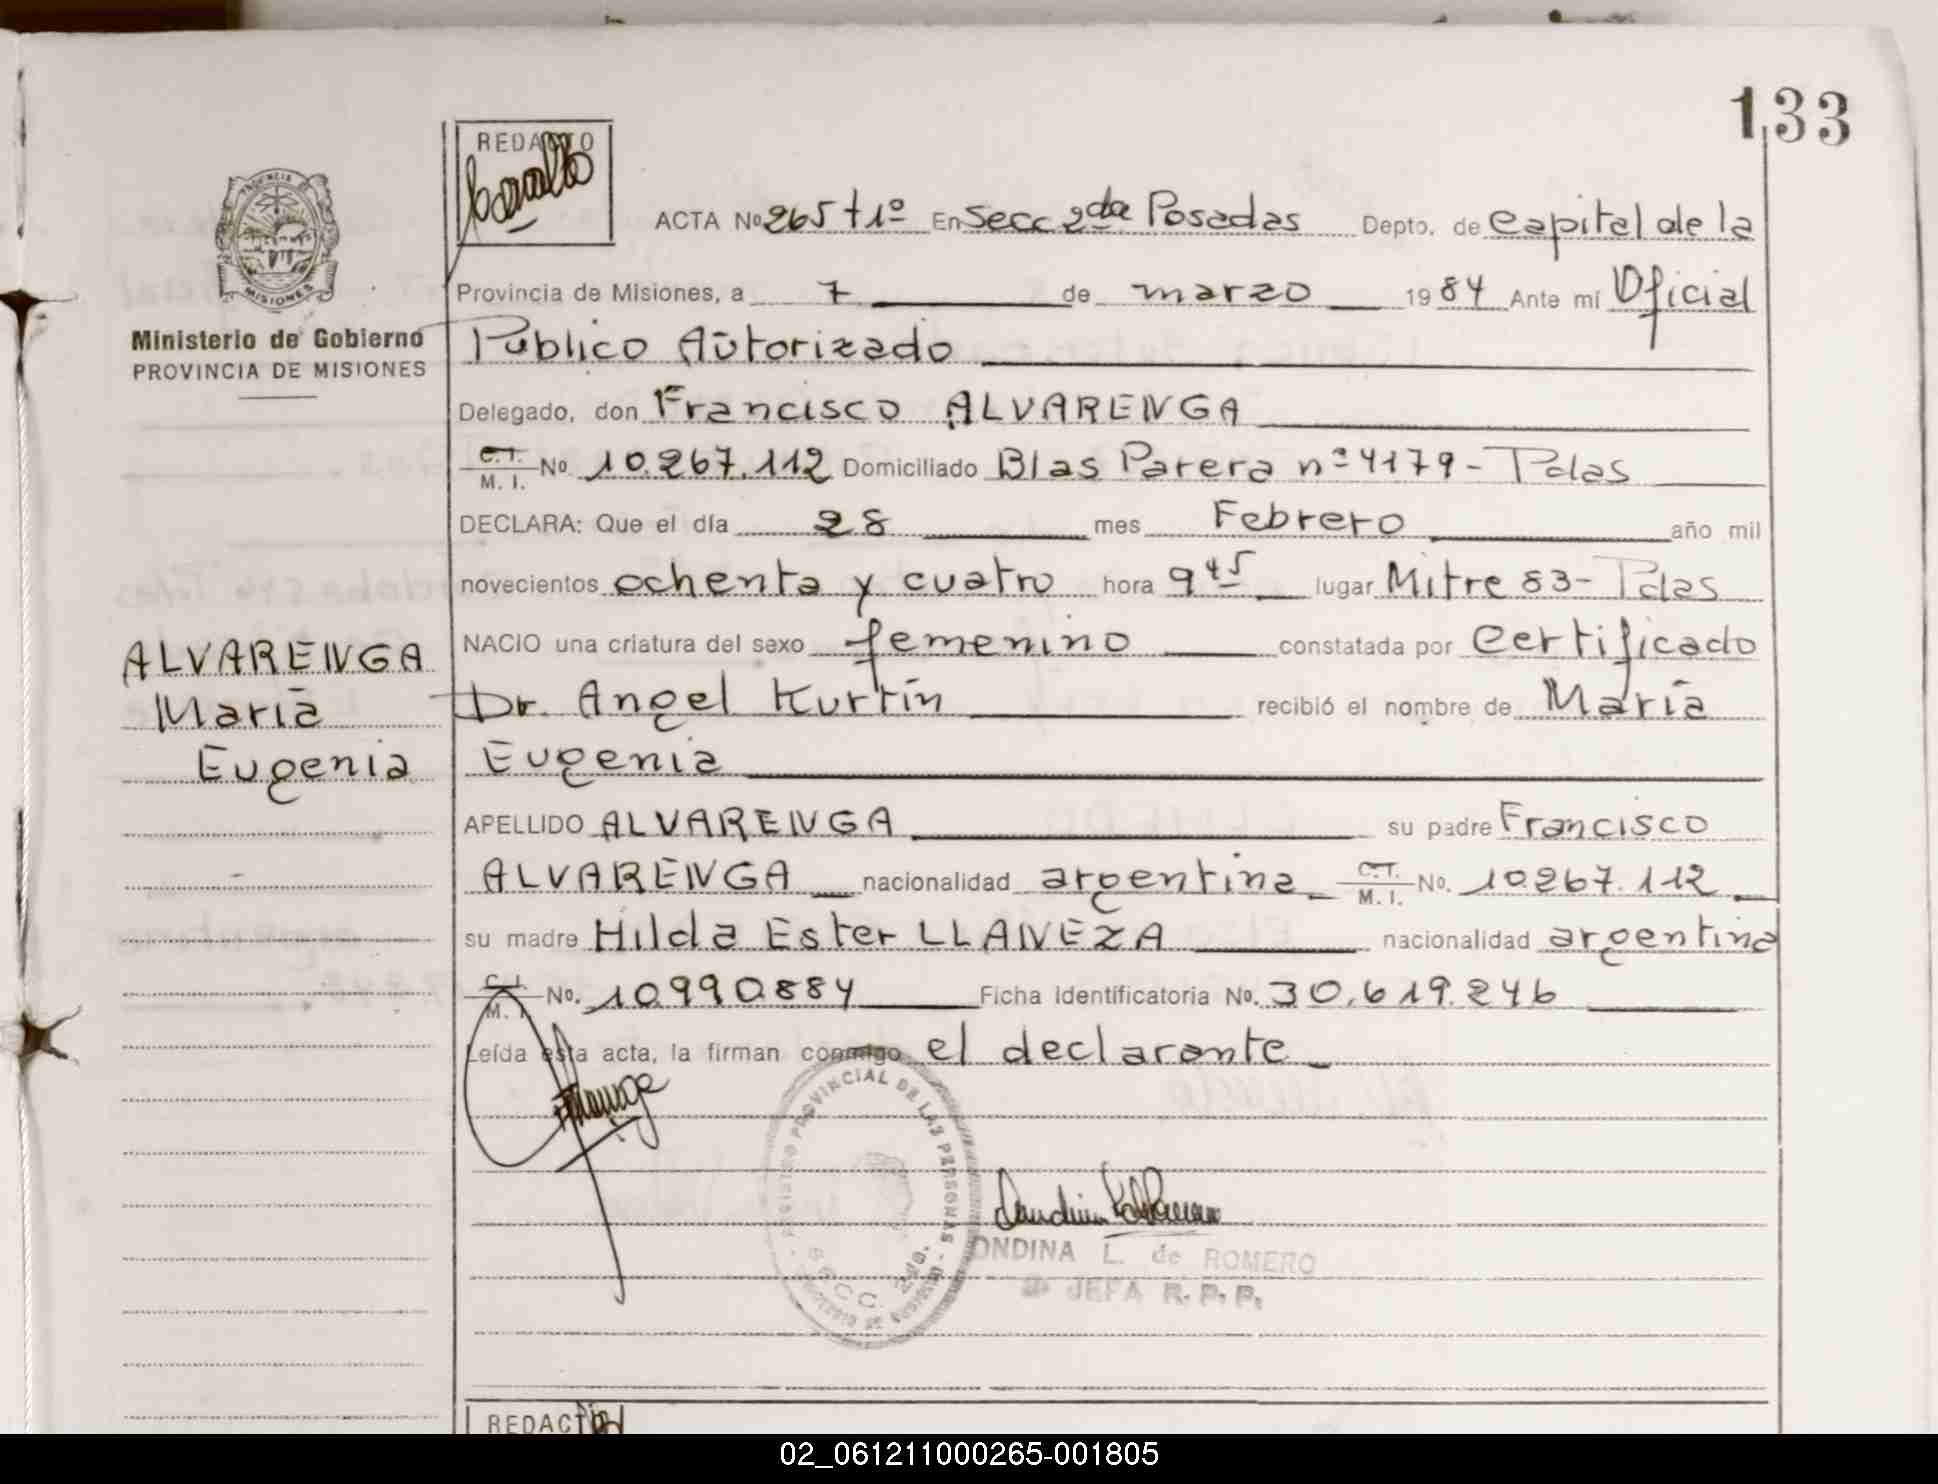 133
REDACTO
ACTA No 265 t 1º En Secc 2da Posadas Depto. de Capital de la
Provincia de Misiones, a 7 de marzo 1984 Ante mí Oficial
Público Autorizado
Delegado, don Francisco ALVARENGA
C.I. M. I. No. 10.267.112 Domiciliado Blas Parera nº 4179 - Pdas
DECLARA: Que el día 28 mes Febrero año mil
novecientos ochenta y cuatro hora 9 45 lugar Mitre 83 - Pdas
NACIO una criatura del sexo femenino constatada por Certificado
Dr. Angel Kurtin recibió el nombre de María
Eugenia
APELLIDO ALVARENGA su padre Francisco
ALVARENGA nacionalidad argentina C.I. M. I. No. 10.267.112
su madre Hilda Ester LLANEZA nacionalidad argentina
C.I. M. I. No. 10.990.884 Ficha Identificatoria No. 30.619.246
Leída esta acta, la firman conmigo el declarante
MISIONES
Ministerio de Gobierno
PROVINCIA DE MISIONES
ALVARENGA
María
Eugenia
REGISTRO PROVINCIAL DE LAS PERSONAS
SECC. 2da.
ONDINA L. de ROMERO
JEFA R. P. P.
REDACTO
02_061211000265-001805